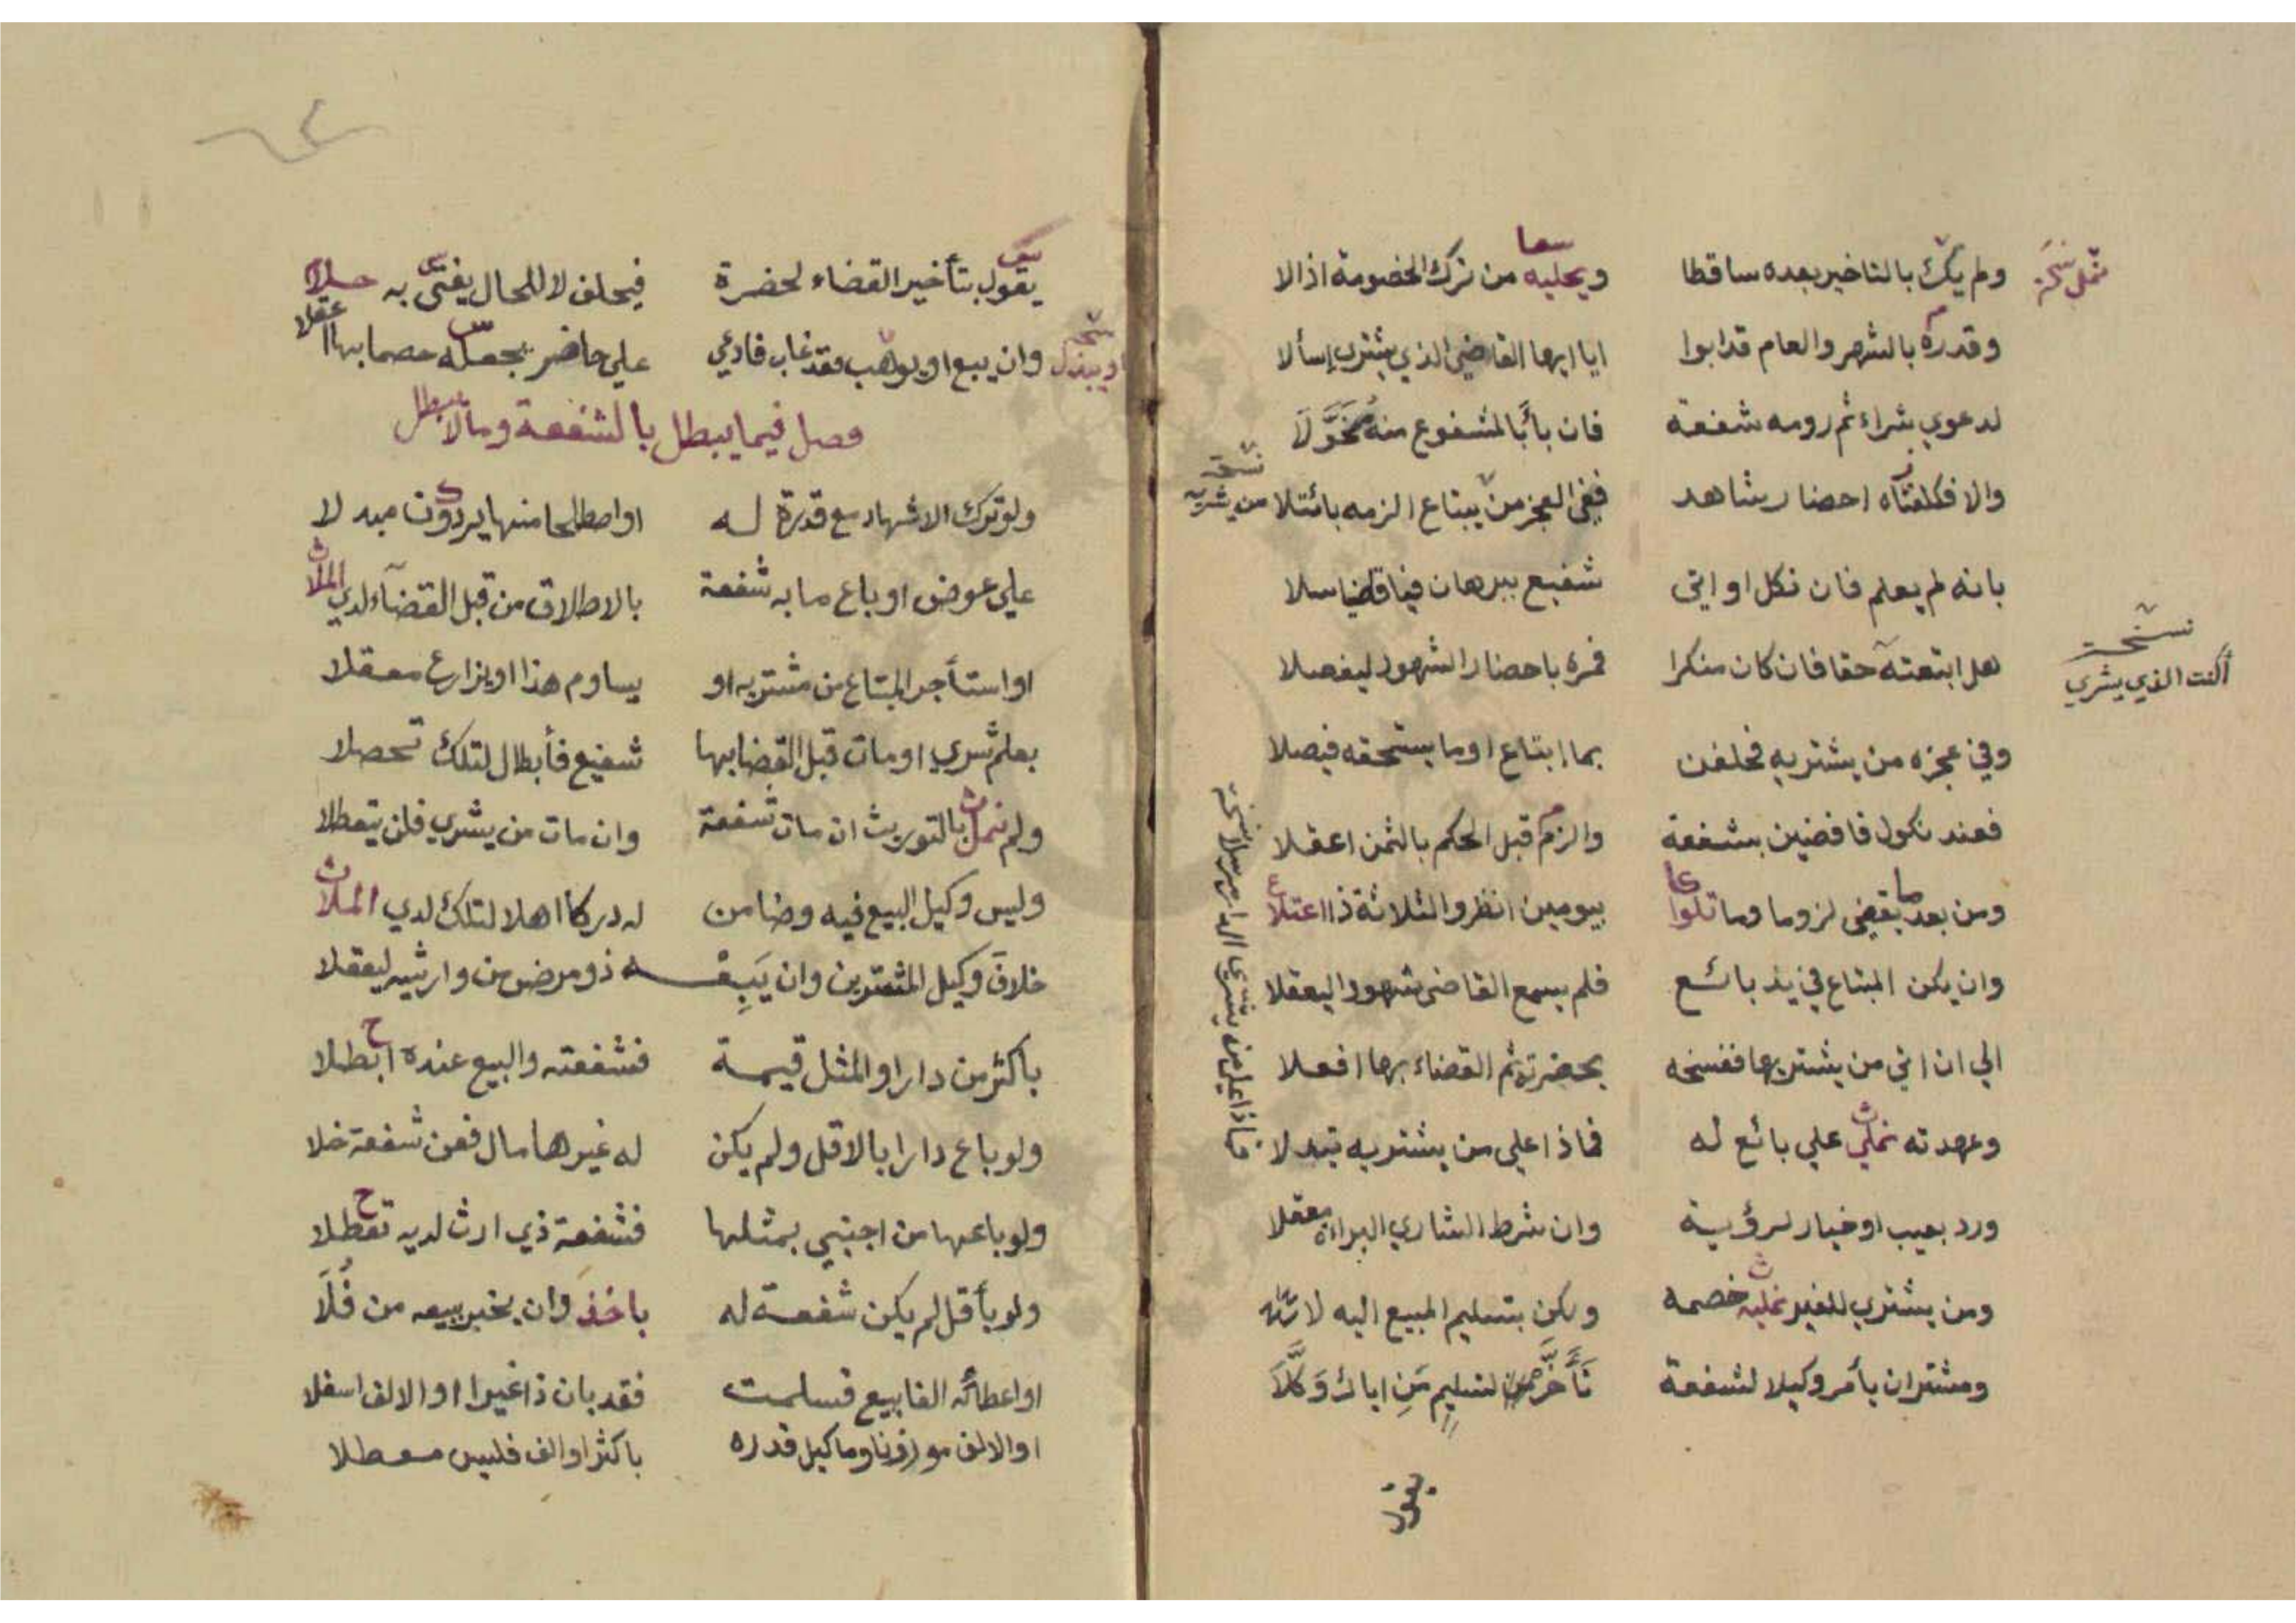 ولم يك بالتاخير بعده ساقطا ويحليه من ترك الخصومة اذ الا
وقدره بالشهر والعام قدابوا ايا ايها القاضي الذي يشتري إسألا
لدعوي شراء ثم رومه شفعة فان بأبالمشفوع منه مُخَوَّلَا
والا فكلفناه احضار شاهد ففي العجز من يبتاع الزمه بائتلا
نسخة من يشريه
بانه لم يعلم فان نكل او اتى شفيع ببرهان فيا قاضيا سلا
هل ابتعته حقا فان كان منكرا فمره باحضار الشهود ليفصلا
نسخة
أأنت الذي يشري
وفي عجزه من يشتريه فحلفن بما ابتاع او ما يستحقه فيصلا
فعند نكول فاقضين بشفعة والزم قبل الحكم بالثمن اعقلا
ومن بعد ما يقضي لزوما وما تلوا بيومين انظر والثلاثة ذا اعتلا
وان يكن المبتاع في يد بائع فلم يسمع القاضي شهودا ليعقلا
الي ان اتي من يشتريها ففسخه بحضرته ثم القضاء بها افعلا
وعهدته نملي علي بائع له فماذا علي من يشتريه تبدلا
ورد بعيب او خيار لرؤية وان شرط الشاري البراءه معقلا
ومن يشتري للغير نمليه خصمه ولكن بتسليم المبيع اليه لا
ومشتران يأمر وكيلا لشفعة تَأَخَّر لتسليم مَنِ اياك وَكَّلَا
يقول
يقول بتأخير القضاء لحضرة فيحلف لا للحال يفتي به حلا
وان يبع او يوهب وقد غاب فادعي علي حاضر بجعله خصما بها عقلا
نسخة او يبذل
فصل فيما يبطل بالشفعة وما لا يبطل
ولو ترك الاشهاد مع قدرة له او اصطلحا منها يردون مبدلا
علي عوض او باع ما به شفعة بالاطلاق من قبل القضاء لدي الملا
او استأجر المبتاع من مشتريه او يساوم هذا او يزارع معقلا
بعلم شري او مات قبل القضا بها شفيع فأبطال لتلك تحصلا
ولم نمل بالتوريث ان مات شفعة وان مات من يشري فلن يتعطلا
وليس وكيل البيع فيه وضامن له دركا اهلا لتلك لدي الملا
خلاف وكيل المشترين وان يَبِعْـه ذو مرض من وارثيه ليعقلا
باكثر من دار او المثل قيمة فشفعته والبيع عنده ابطلا
ولو باع دارا بالاقل ولم يكن له غيرها مال فعن شفعة خلا
ولو باعها من اجنبي بمثلها فشفعة ذي ارث لديه تعطلا
ولو بأقل لم يكن شفعة له باخذ وان يخبر ببيعه من فُلَا
او اعطائه الفا بيع فسلمت فقد بان ذا غيرا او الالف اسفلا
او الالف موزونا وما كيل قدره باكثر او الف فليس معطلا